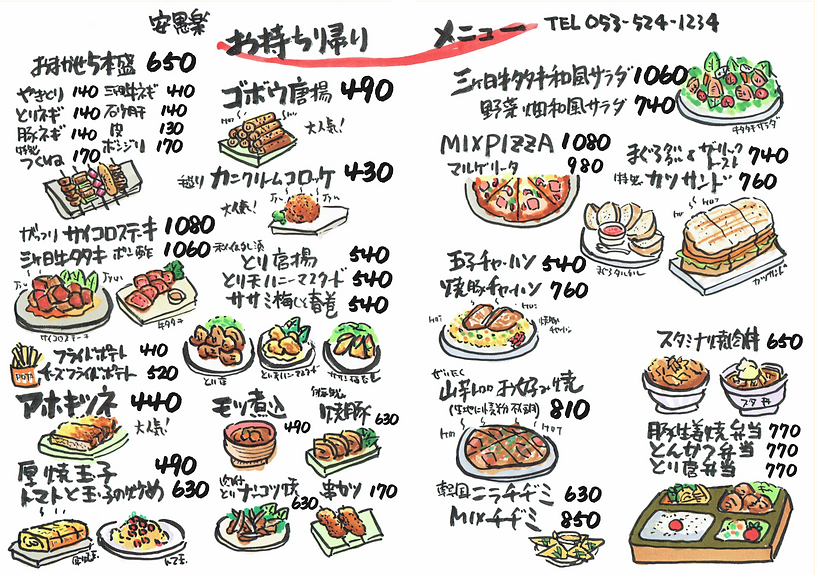 安思楽
お持ち帰り
メニュー
TEL 053-524-1234
おまかせ5本盛 650
やきとり 140
三ヶ日牛ネギ 410
とりネギ 140
砂肝 140
豚ネギ 140
皮 130
つくね 170
ボンジリ 170
ゴボウ唐揚 490
大人気!
カニクリームコロッケ 430
大人気!
がっつり サイコロステーキ 1080
三ヶ日牛タタキ ポン酢 1060
サイコロステーキ
牛タタキ
とり唐揚 540
とり天ハニーマスタード 540
ササミ梅しそ春巻 540
フライドポテト 410
チーズフライドポテト 520
POTA
アホキツネ 440
大人気!
モツ煮込 490
焼豚 630
厚焼玉子 490
トマトと玉子の炒め 630
とりナンコツ焼 630
串カツ 170
三ヶ日牛タタキ和風サラダ 1060
野菜畑和風サラダ 740
牛タタキサラダ
MIXPIZZA 1080
マルゲリータ 980
ガーリックトースト 740
特製 カツサンド 760
HOT
カツサンド
玉子チャーハン 540
焼豚チャーハン 760
HOT
HOT
焼豚チャーハン
ぜいたく
山芋入りお好み焼
(生地に小麦粉不使用) 810
HOT
HOT
韓国ニラチヂミ 630
MIXチヂミ 850
スタミナ焼肉丼 650
スタ丼
豚生姜焼弁当 770
とんかつ弁当 770
とり唐弁当 770